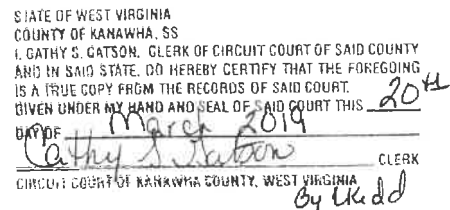 STATE OF WEST VIRGINIA
COUNTY OF KANAWHA, SS
I, CATHY S. GATSON, CLERK OF CIRCUIT COURT OF SAID COUNTY
AND IN SAID STATE, DO HEREBY CERTIFY THAT THE FOREGOING
IS A TRUE COPY FROM THE RECORDS OF SAID COURT.
GIVEN UNDER MY HAND AND SEAL OF SAID COURT THIS 20th
DAY OF March 2019
Cathy S. Gatson CLERK
CIRCUIT COURT OF KANAWHA COUNTY, WEST VIRGINIA
By